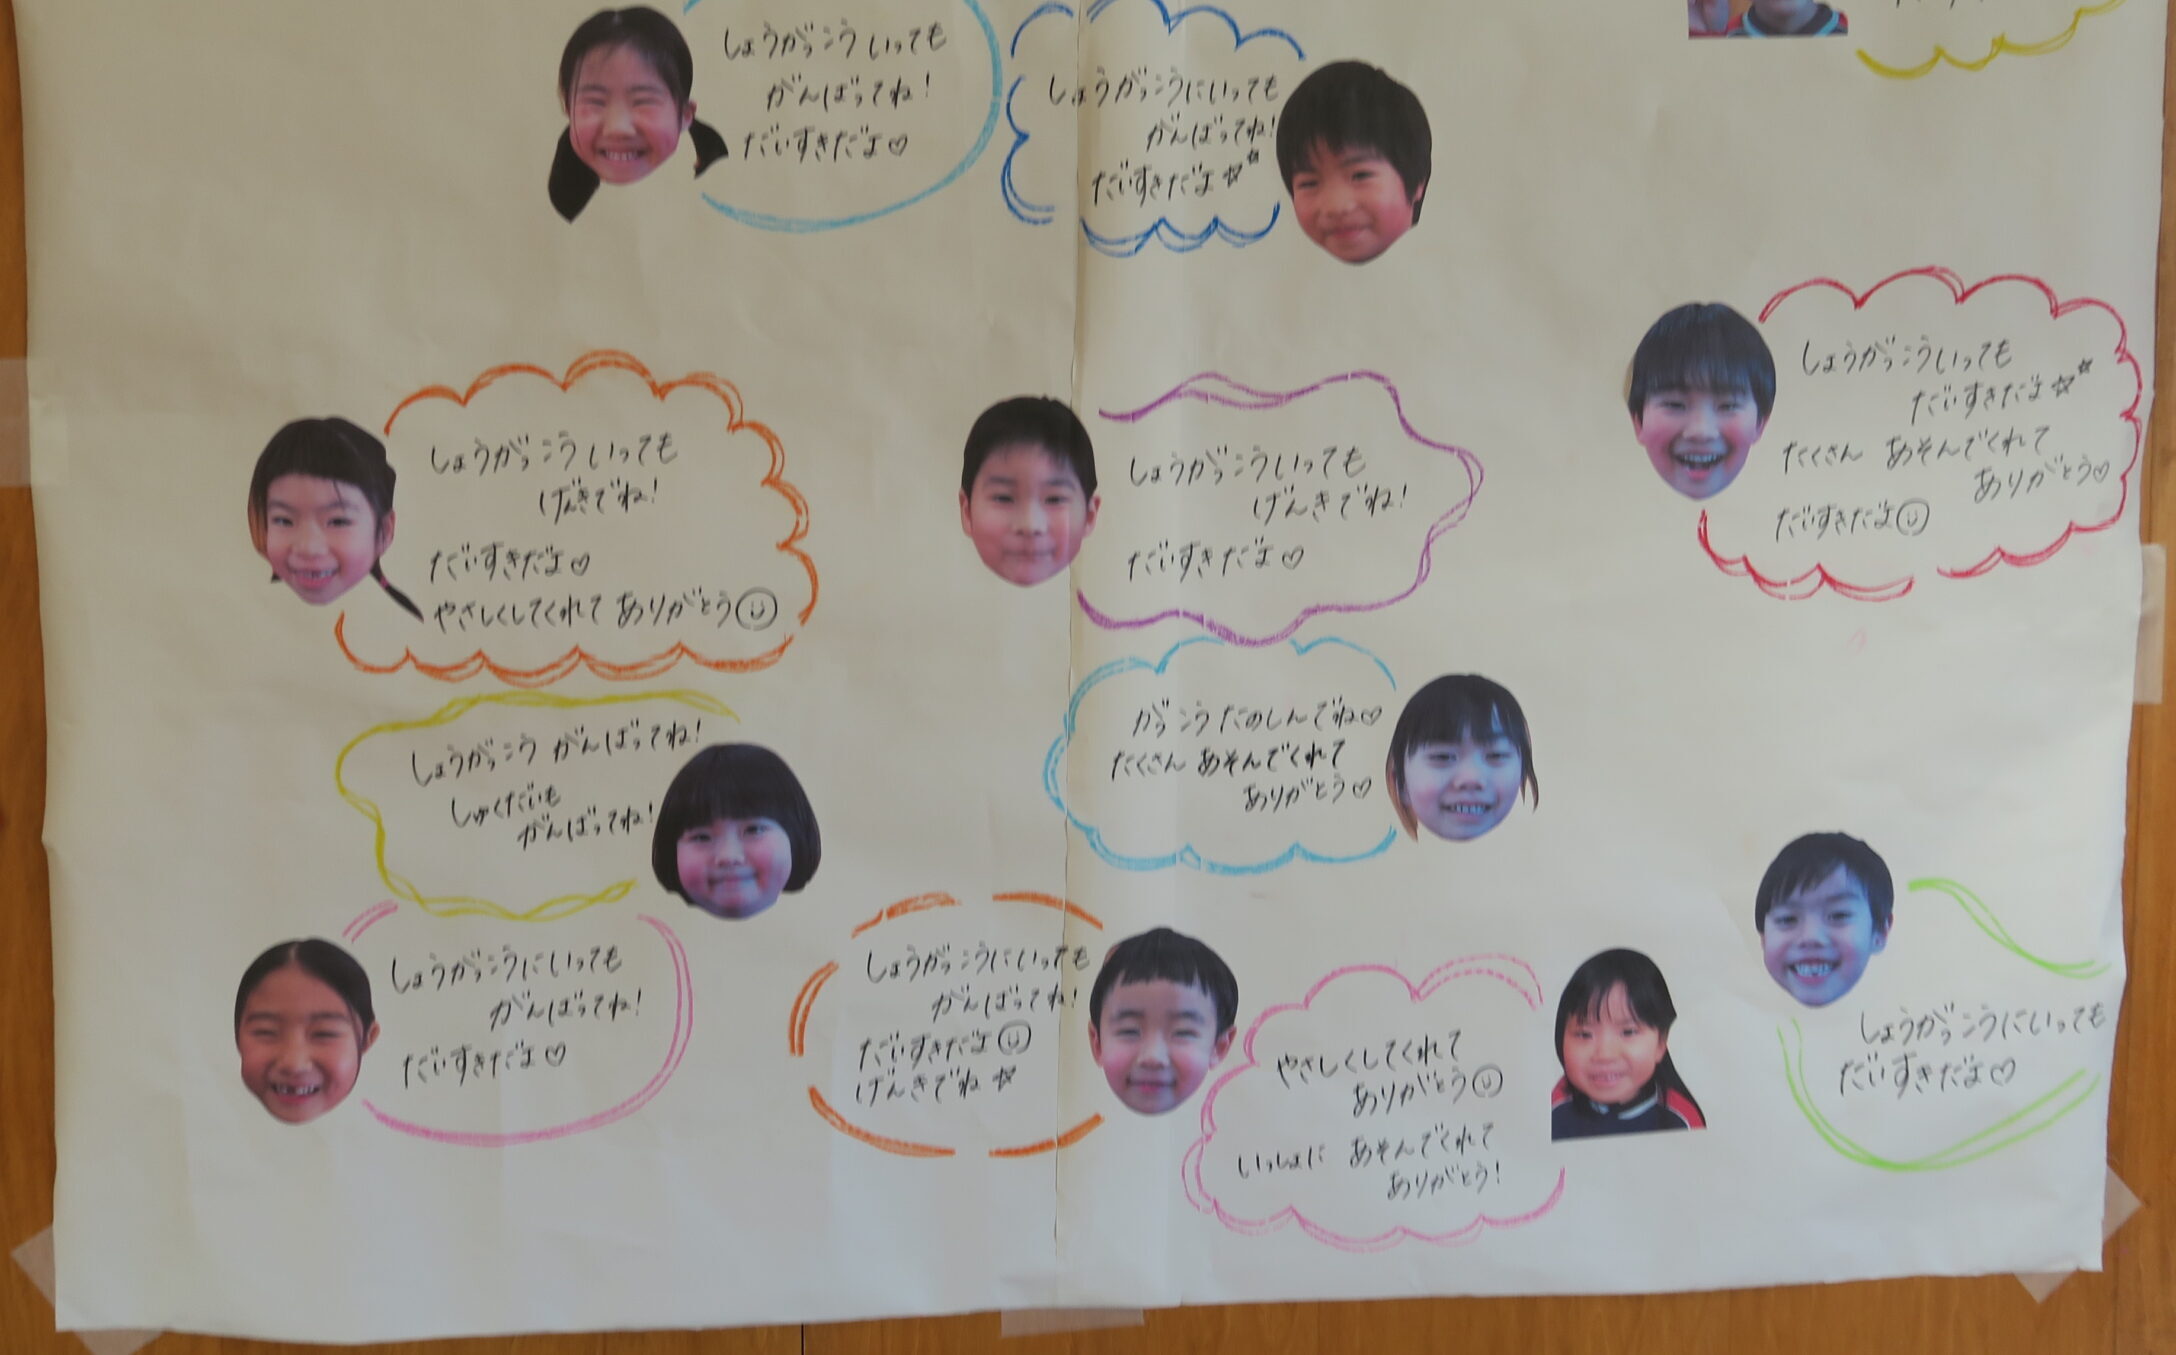 しょうがっこういっても
がんばってね!
だいすきだよ♡
しょうがっこうにいっても
がんばってね!
だいすきだよ☆☆
しょうがっこういっても
だいすきだよ☆☆
たくさん あそんでくれて
ありがとう♡
だいすきだよ☺
しょうがっこういっても
げんきでね!
だいすきだよ♡
やさしくしてくれて ありがとう☺
しょうがっこういっても
げんきでね!
だいすきだよ♡
しょうがっこう がんばってね!
しゅくだいも
がんばってね!
がっこうたのしんでね♡
たくさん あそんでくれて
ありがとう♡
しょうがっこうにいっても
がんばってね!
だいすきだよ♡
しょうがっこうにいっても
がんばってね!
だいすきだよ☺
げんきでね☆
やさしくしてくれて
ありがとう☺
いっしょに あそんでくれて
ありがとう!
しょうがっこうにいっても
だいすきだよ♡